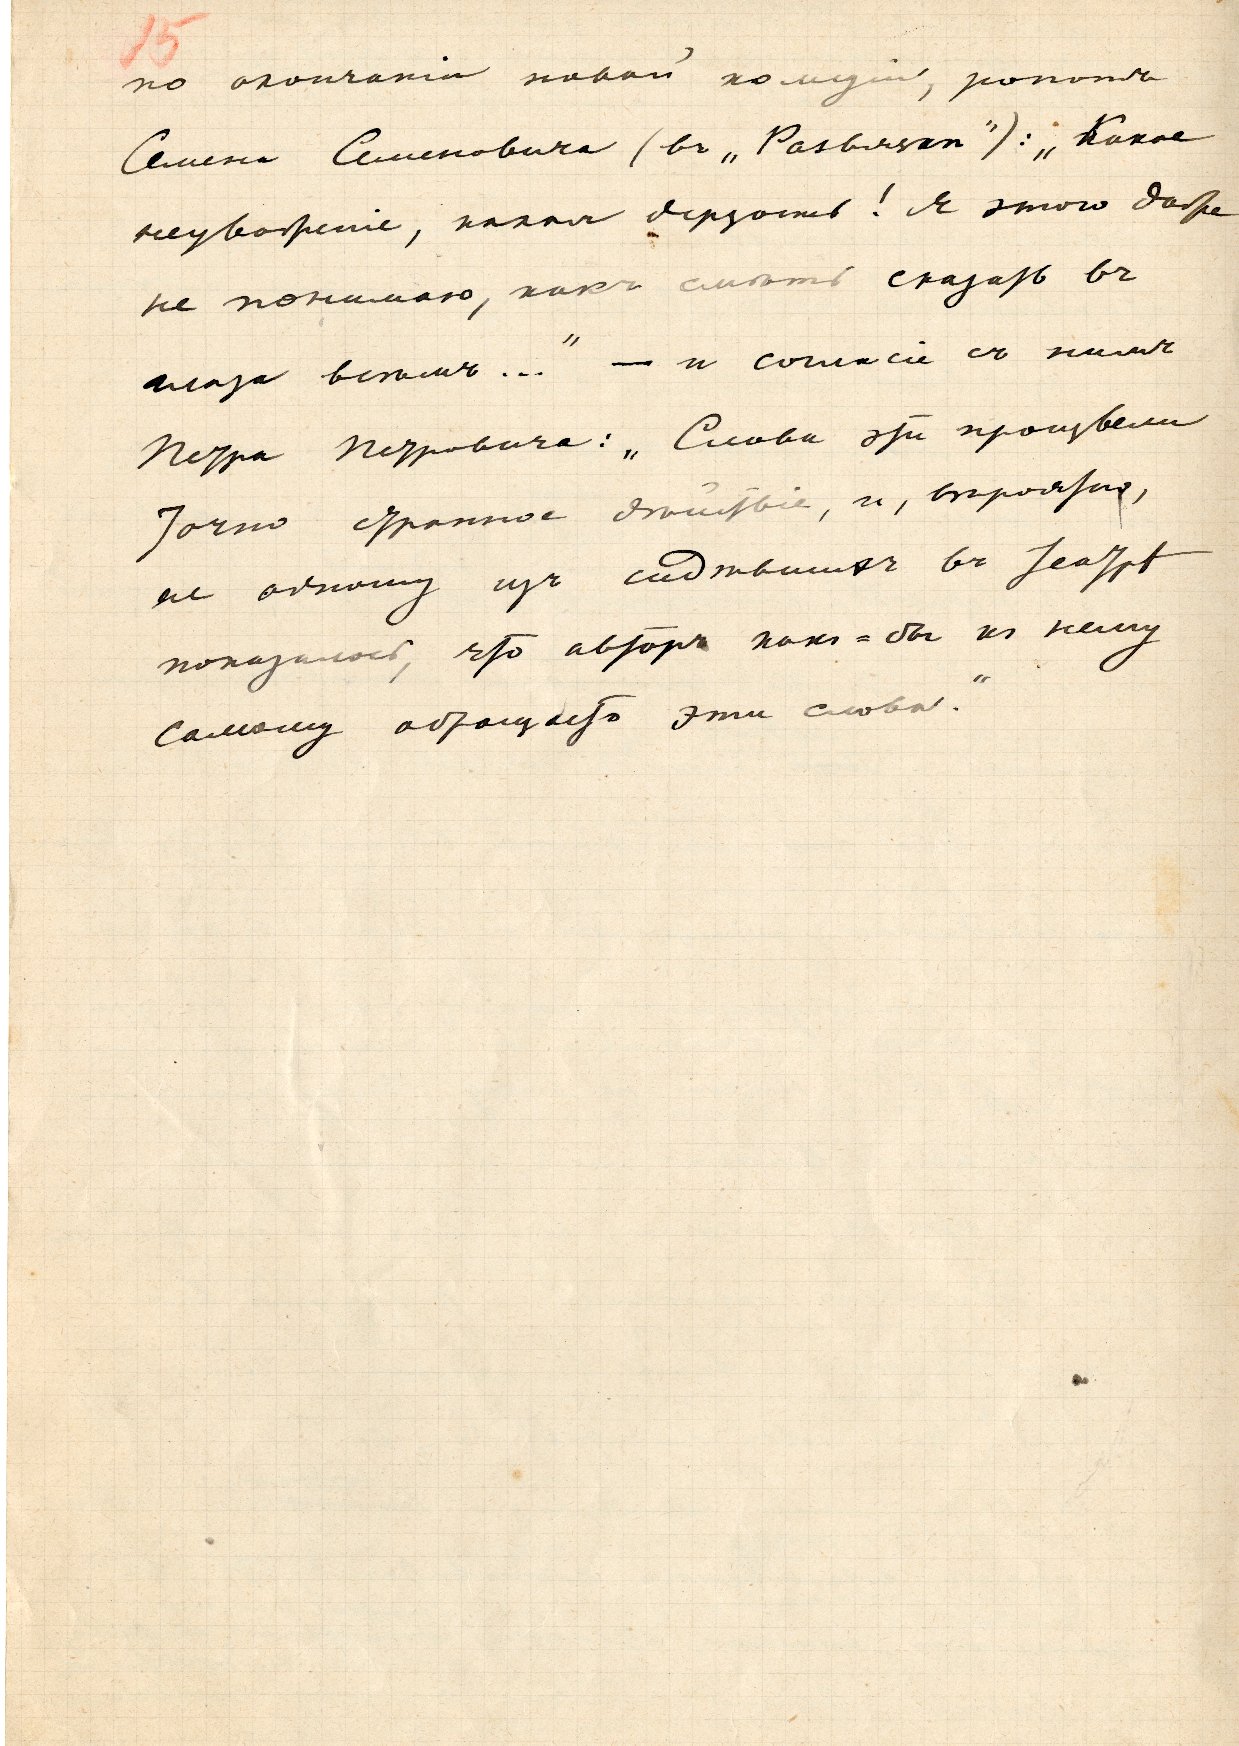 15
по окончаніи новой комедіи, ропотъ
Семена Семеновича (въ „Развязкѣ“): „Какое
неуваженіе, какая дерзость! Я этого даже
не понимаю, какъ смѣть сказать въ
глаза всѣмъ...“ — и согласіе съ нимъ
Петра Петровича: „Слова эти произвели
точно странное дѣйствіе, и, вѣроятно,
не одному изъ сидѣвшихъ въ театрѣ
показалось, что авторъ какъ=бы къ нему
самому обращаетъ эти слова.“